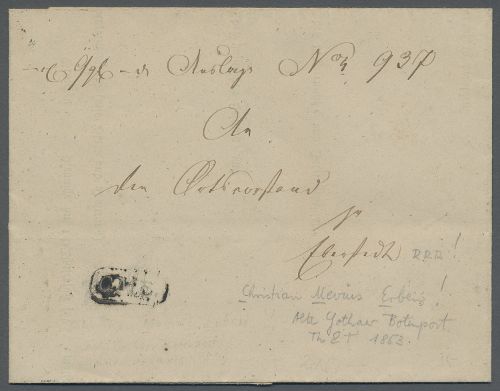 Auslage No 937
An
den Ortsvorstand
zu
Eberstedt RRR!
Christian Mevius Erben!
Alte Gothaer Botenpost
Th&T 1863
CME